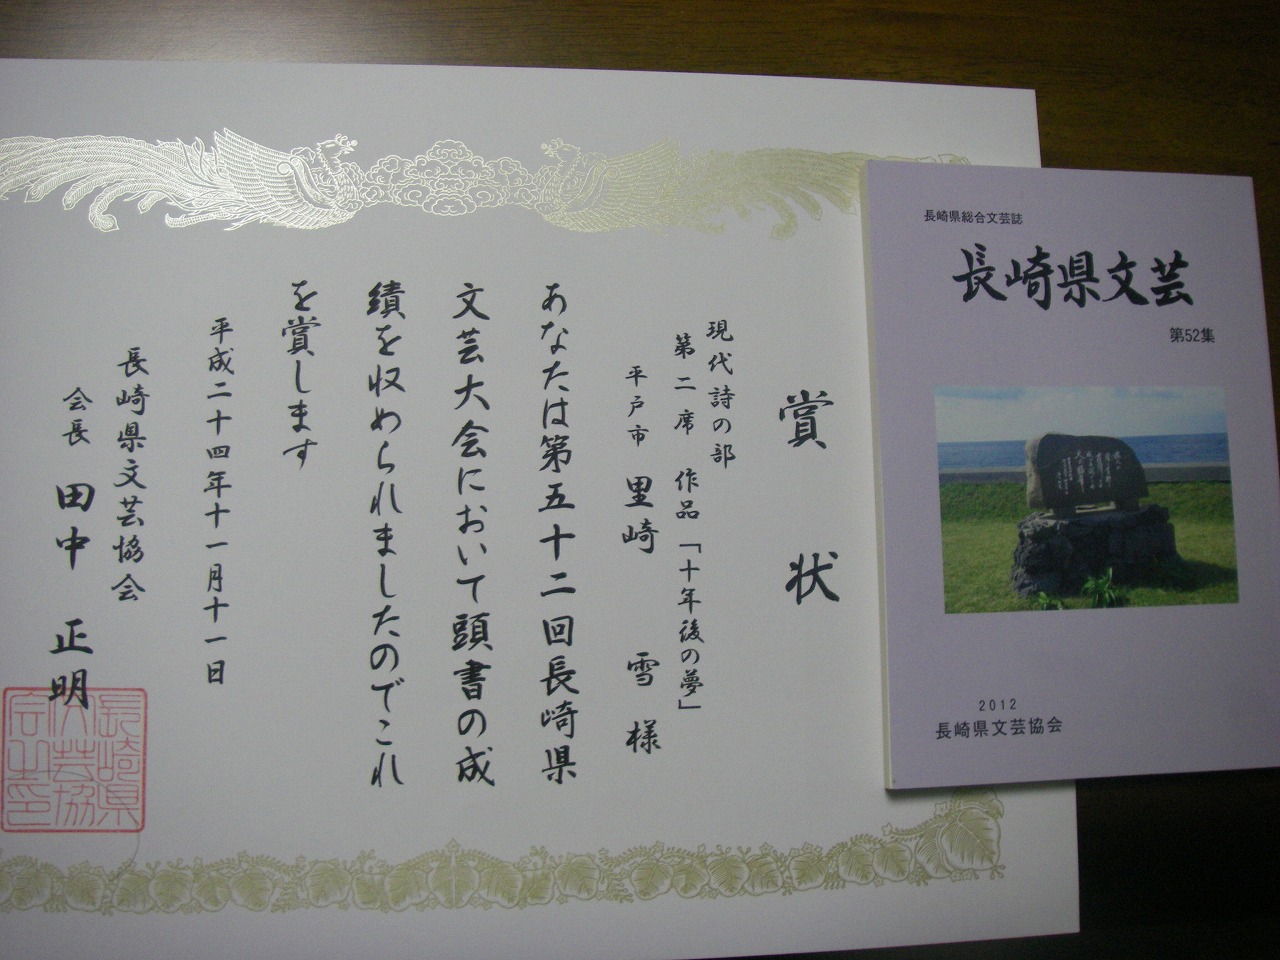 賞状
現代詩の部
第二席 作品「十年後の夢」
平戸市 里崎 雪 様
あなたは第五十二回長崎県
文芸大会において頭書の成
績を収められましたのでこれ
を賞します
平成二十四年十一月十一日
長崎県文芸協会
会長 田中 正明
長崎県
文芸協
会之印
長崎県総合文芸誌
長崎県文芸
第52集
2012
長崎県文芸協会